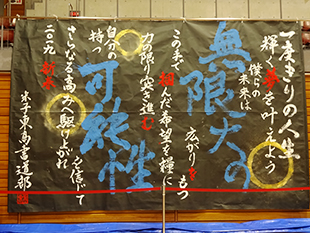 一度きりの人生
輝く夢を叶えよう
僕らの未来は
無限大の
広がりをもつ
この手で掴んだ希望を糧に
力の限り突き進む
可能性
自分の持つ
を信じて
さらなる高みへ駆け上がれ
二〇一九 新春
米子東高書道部